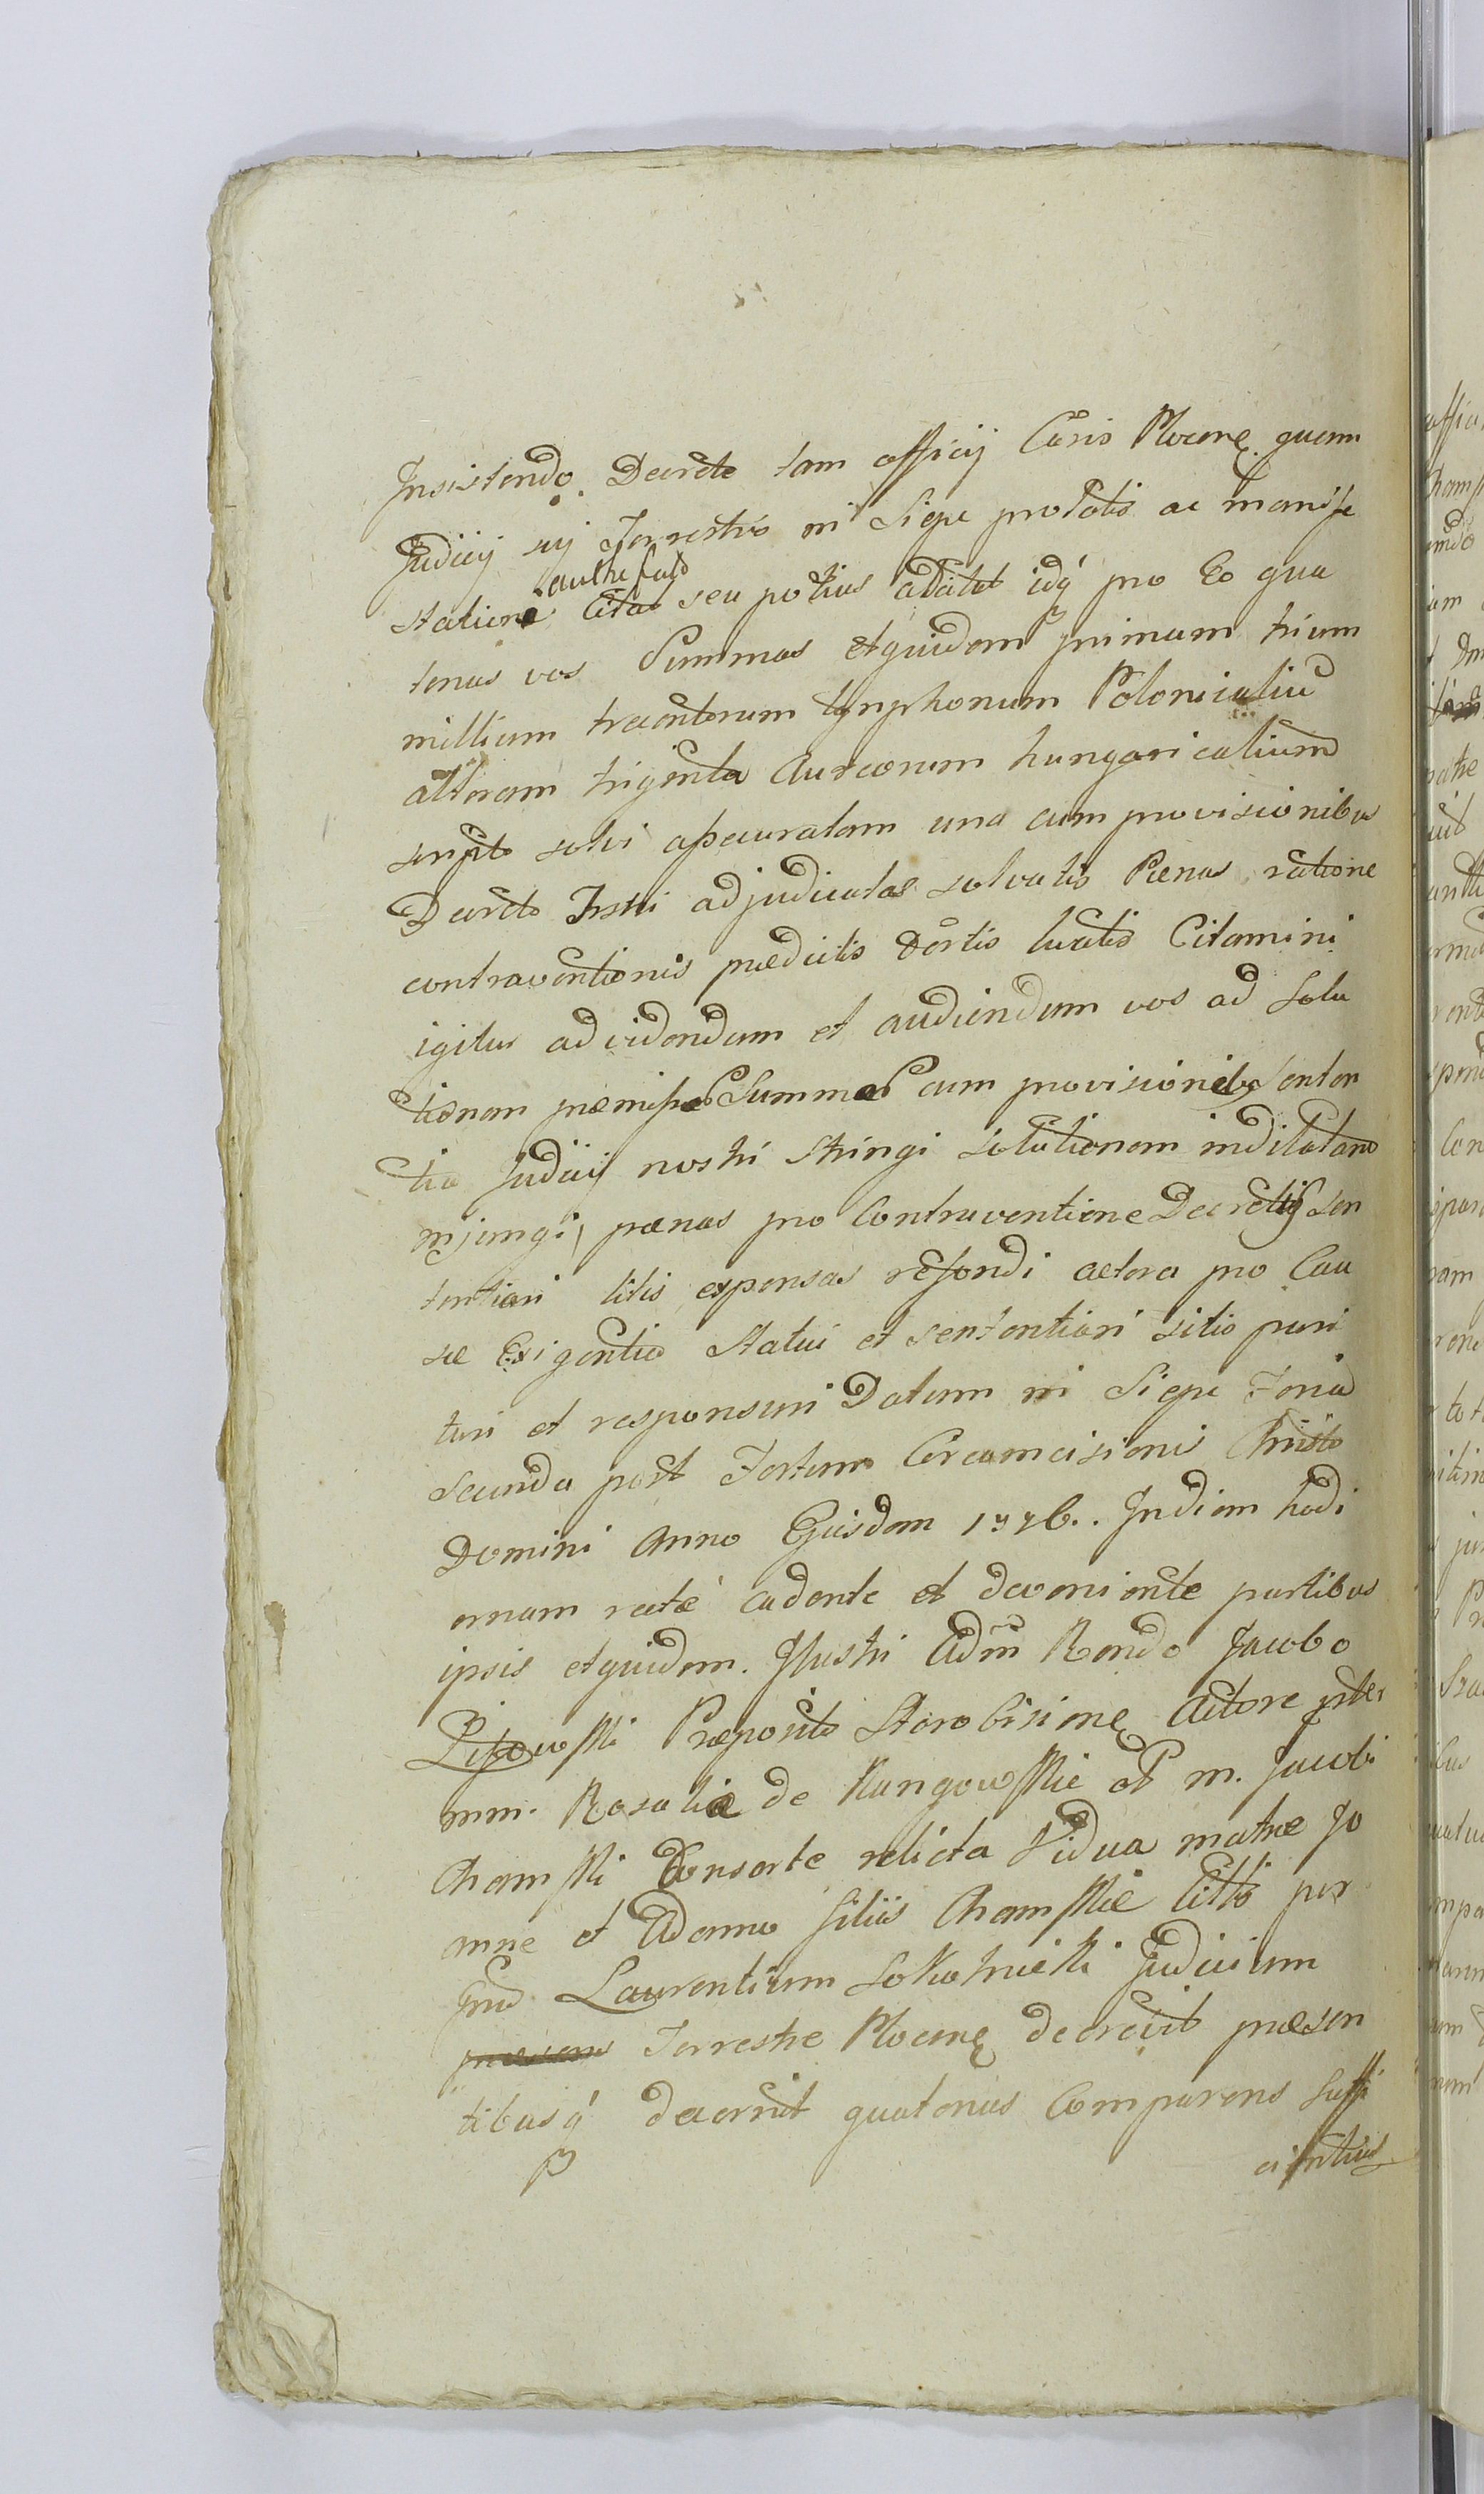 Insistendo. Decreto tam officij Cãris Plocen̄ę quam
Judicij sui Terrestris in Siepc prolatis ac manife
statione authefato
Citat seu potius adcitat idq́ pro Eo qua
tenus vos Summas etquidem primam trium
millium trecentorum tynphonum Polonicaliũ
alteram triginta Aureorum hungaricalium
scripto solvi assecuratam una cum provisionibus
Decreto Trstri adjudicatas solvatis Pœnas ratione
contraventionis prædictis Dortis luatis Citamini
igitur ad videndum et audiendum vos ad Solu
tionem præmissas Summas cum provisionibȝ senten
tia Judicij nostri Stringi solutionem indilatam
injungi, pœnas pro Contraventione Decretis Sen
tentiari litis expensas refondi cætera pro Cau
sæ Exigentia Statui et sententiari sitis pari
turi et responsuri Datum in Siepc Feria
Secunda post Festum Circumcisionis Christi
Domini Anno Ejusdem 1776.. In diem hodi
ernam recte cadente et devoniente partibus
ipsis etquidem. Illustri Adm̃ Rendo Jacobo
Lipowski Præposito Skrobisinę Actore inter
mm. Rosalia de Kungowskie et m. Jacobi
Chamski Consorte relicta Vidua matre Jo
anne et Adamo filiis Chamskie Citts per
Laurentium Sokolnicki Judicium
præsens Terrestre Plocenę decrevit præsen
tibusq́ decernit quatenus Comparens suffi
cientius